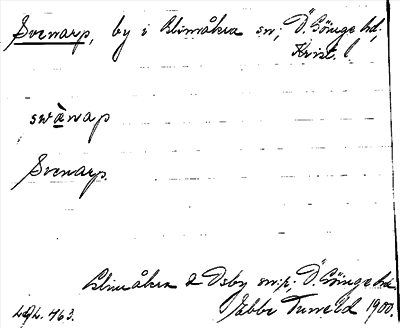 Svenarp, by i Glimåkra sn; Ö. Göinge hd,
Krist. l.
swànap
Svenarp.
Glimåkra & Osby snr; Ö. Göinge hd.
Ebbe Tuneld 1900.
463.